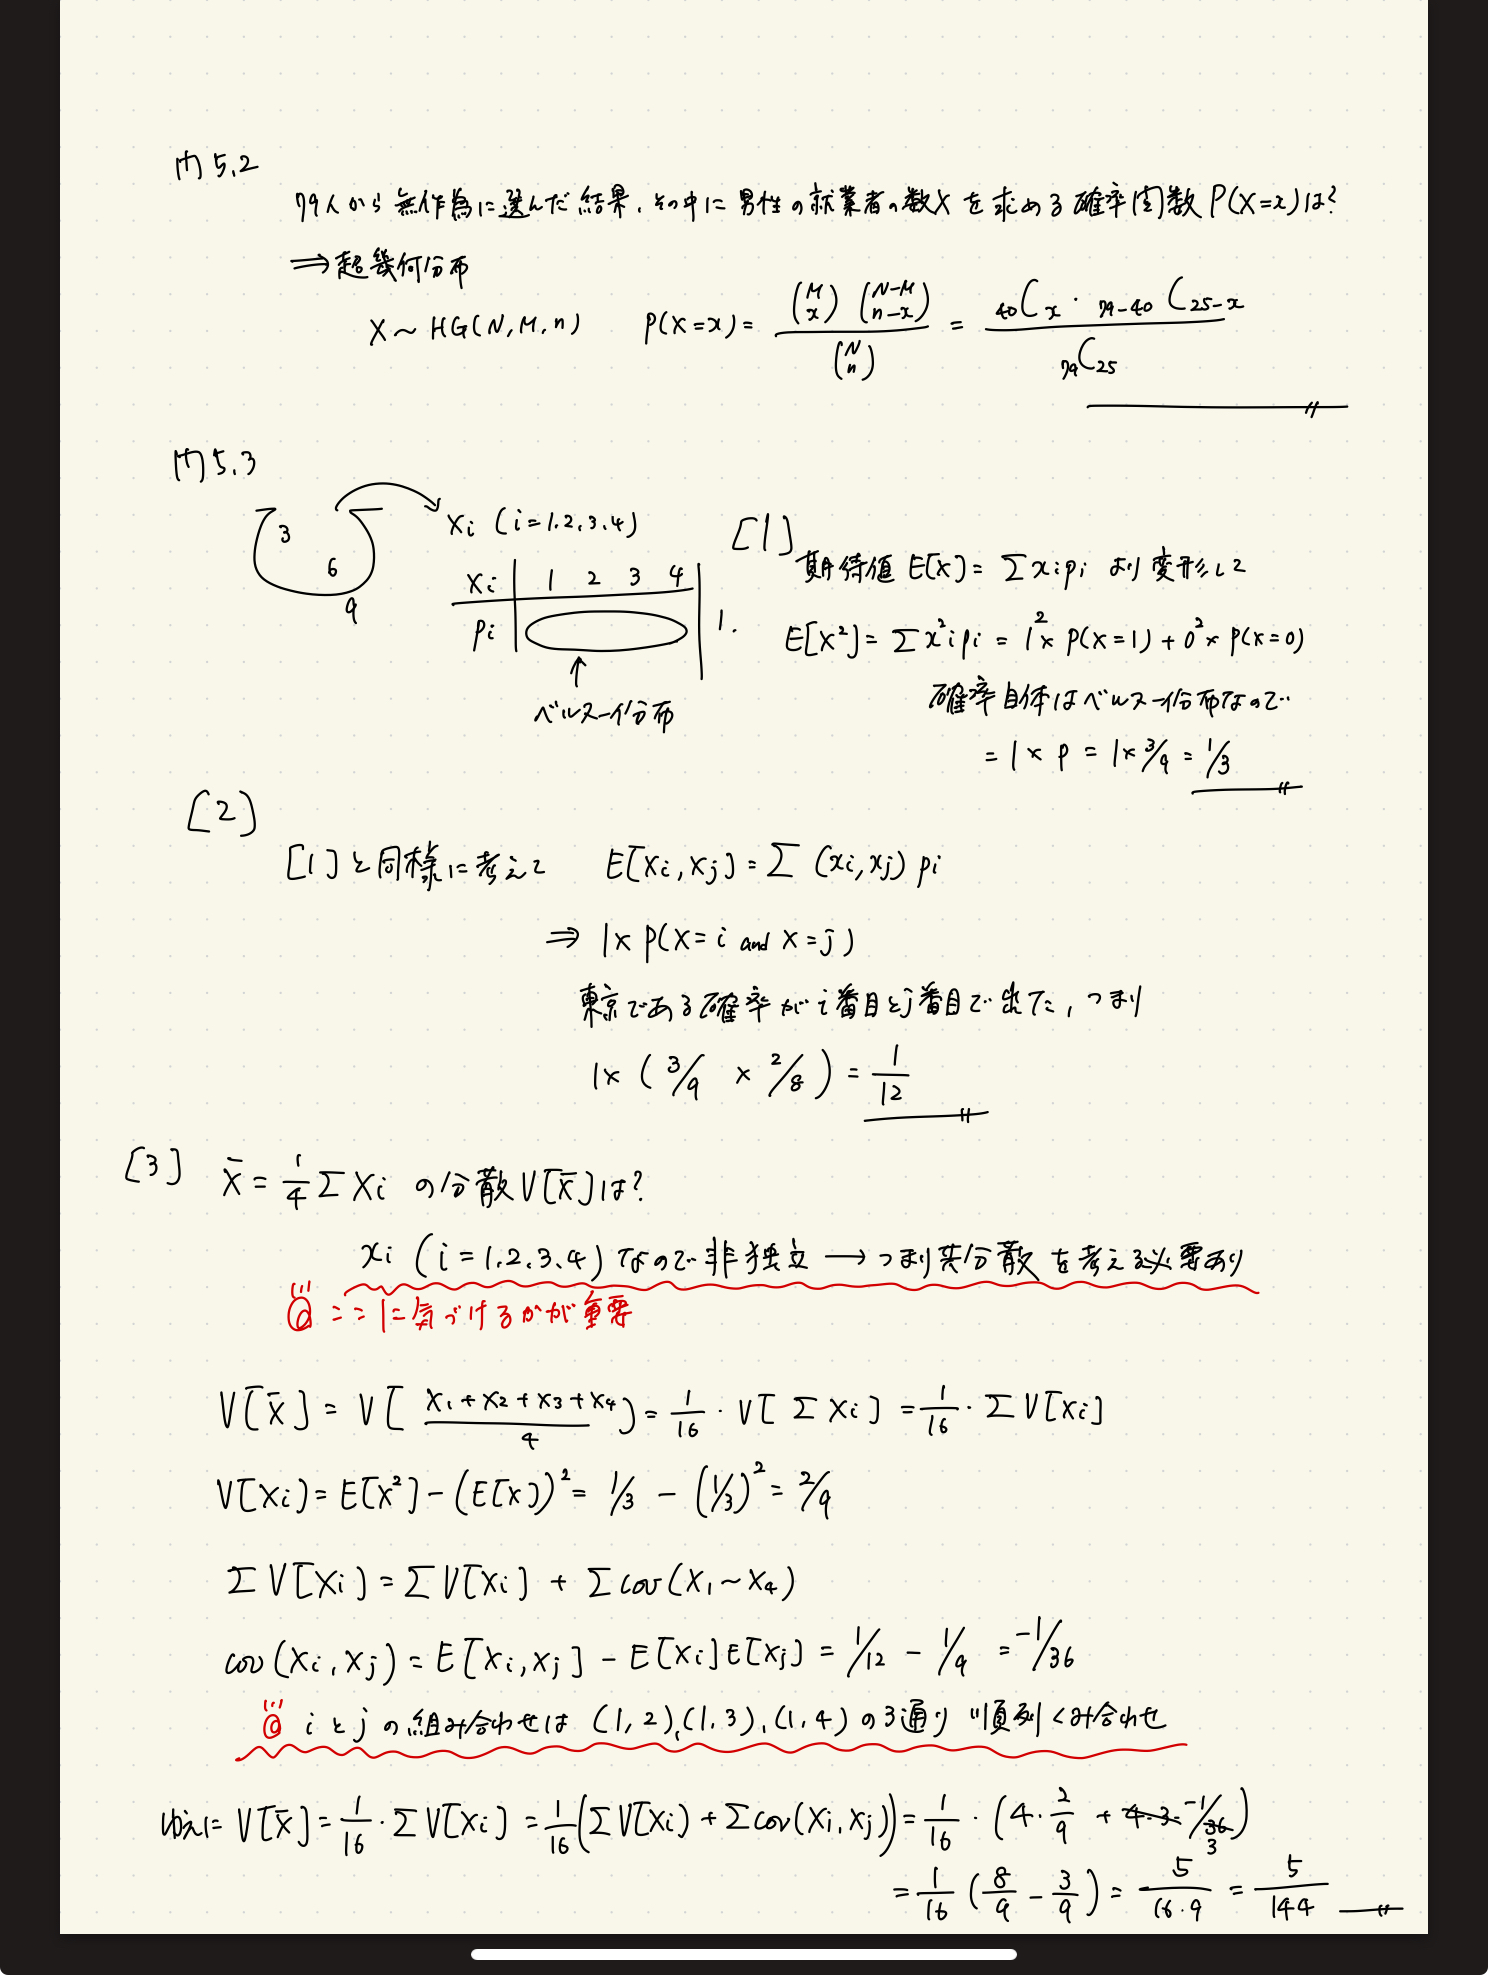 問5.2
79人から無作為に選んだ結果、その中に男性の就業者の数Xを求める確率関数P(X=x)は?
⇒超幾何分布
X～HG(N,M,n) P(X=x)= (M x)(N-M n-x) / (N n) = 40Cx・79-40C25-x / 79C25
問5.3
3 6 9
Xi (i=1.2.3.4)
Xi | 1 2 3 4 |
Pi | | 1.
↑
ベルヌーイ分布
[1]
期待値 E[X]=Σxipi より変形して
E[X²]=Σx²ipi=1²×P(X=1)+0²×P(X=0)
確率自体はベルヌーイ分布なので
=1×P=1×3/9=1/3
[2]
[1]と同様に考えて E[Xi,Xj]=Σ(xi,xj)pi
⇒ 1×P(X=i and X=j)
東京である確率がi番目とj番目で出た,つまり
1×(3/9 × 2/8)=1/12
[3] X̄=1/4ΣXi の分散V[X̄]は?
xi (i=1.2.3.4)なので非独立→つまり共分散を考える必要あり
ここに気づけるかが重要
V[X̄]=V[(X1+X2+X3+X4)/4]=1/16・V[ΣXi]=1/16・ΣV[Xi]
V[Xi]=E[X²]-(E[X])²=1/3-(1/3)²=2/9
ΣV[Xi]=ΣV[Xi]+Σcov(X1～X4)
cov(Xi,Xj)=E[Xi,Xj]-E[Xi]E[Xj]=1/12-1/9=-1/36
iとjの組み合わせは(1,2),(1,3),(1,4)の3通り 順列くみ合わせ
ゆえに V[X̄]=1/16・ΣV[Xi]=1/16(ΣV[Xi)+Σcov(Xi,Xj))=1/16・(4・2/9+4・3・-1/36 3)
=1/16(8/9-3/9)=5/16・9=5/144